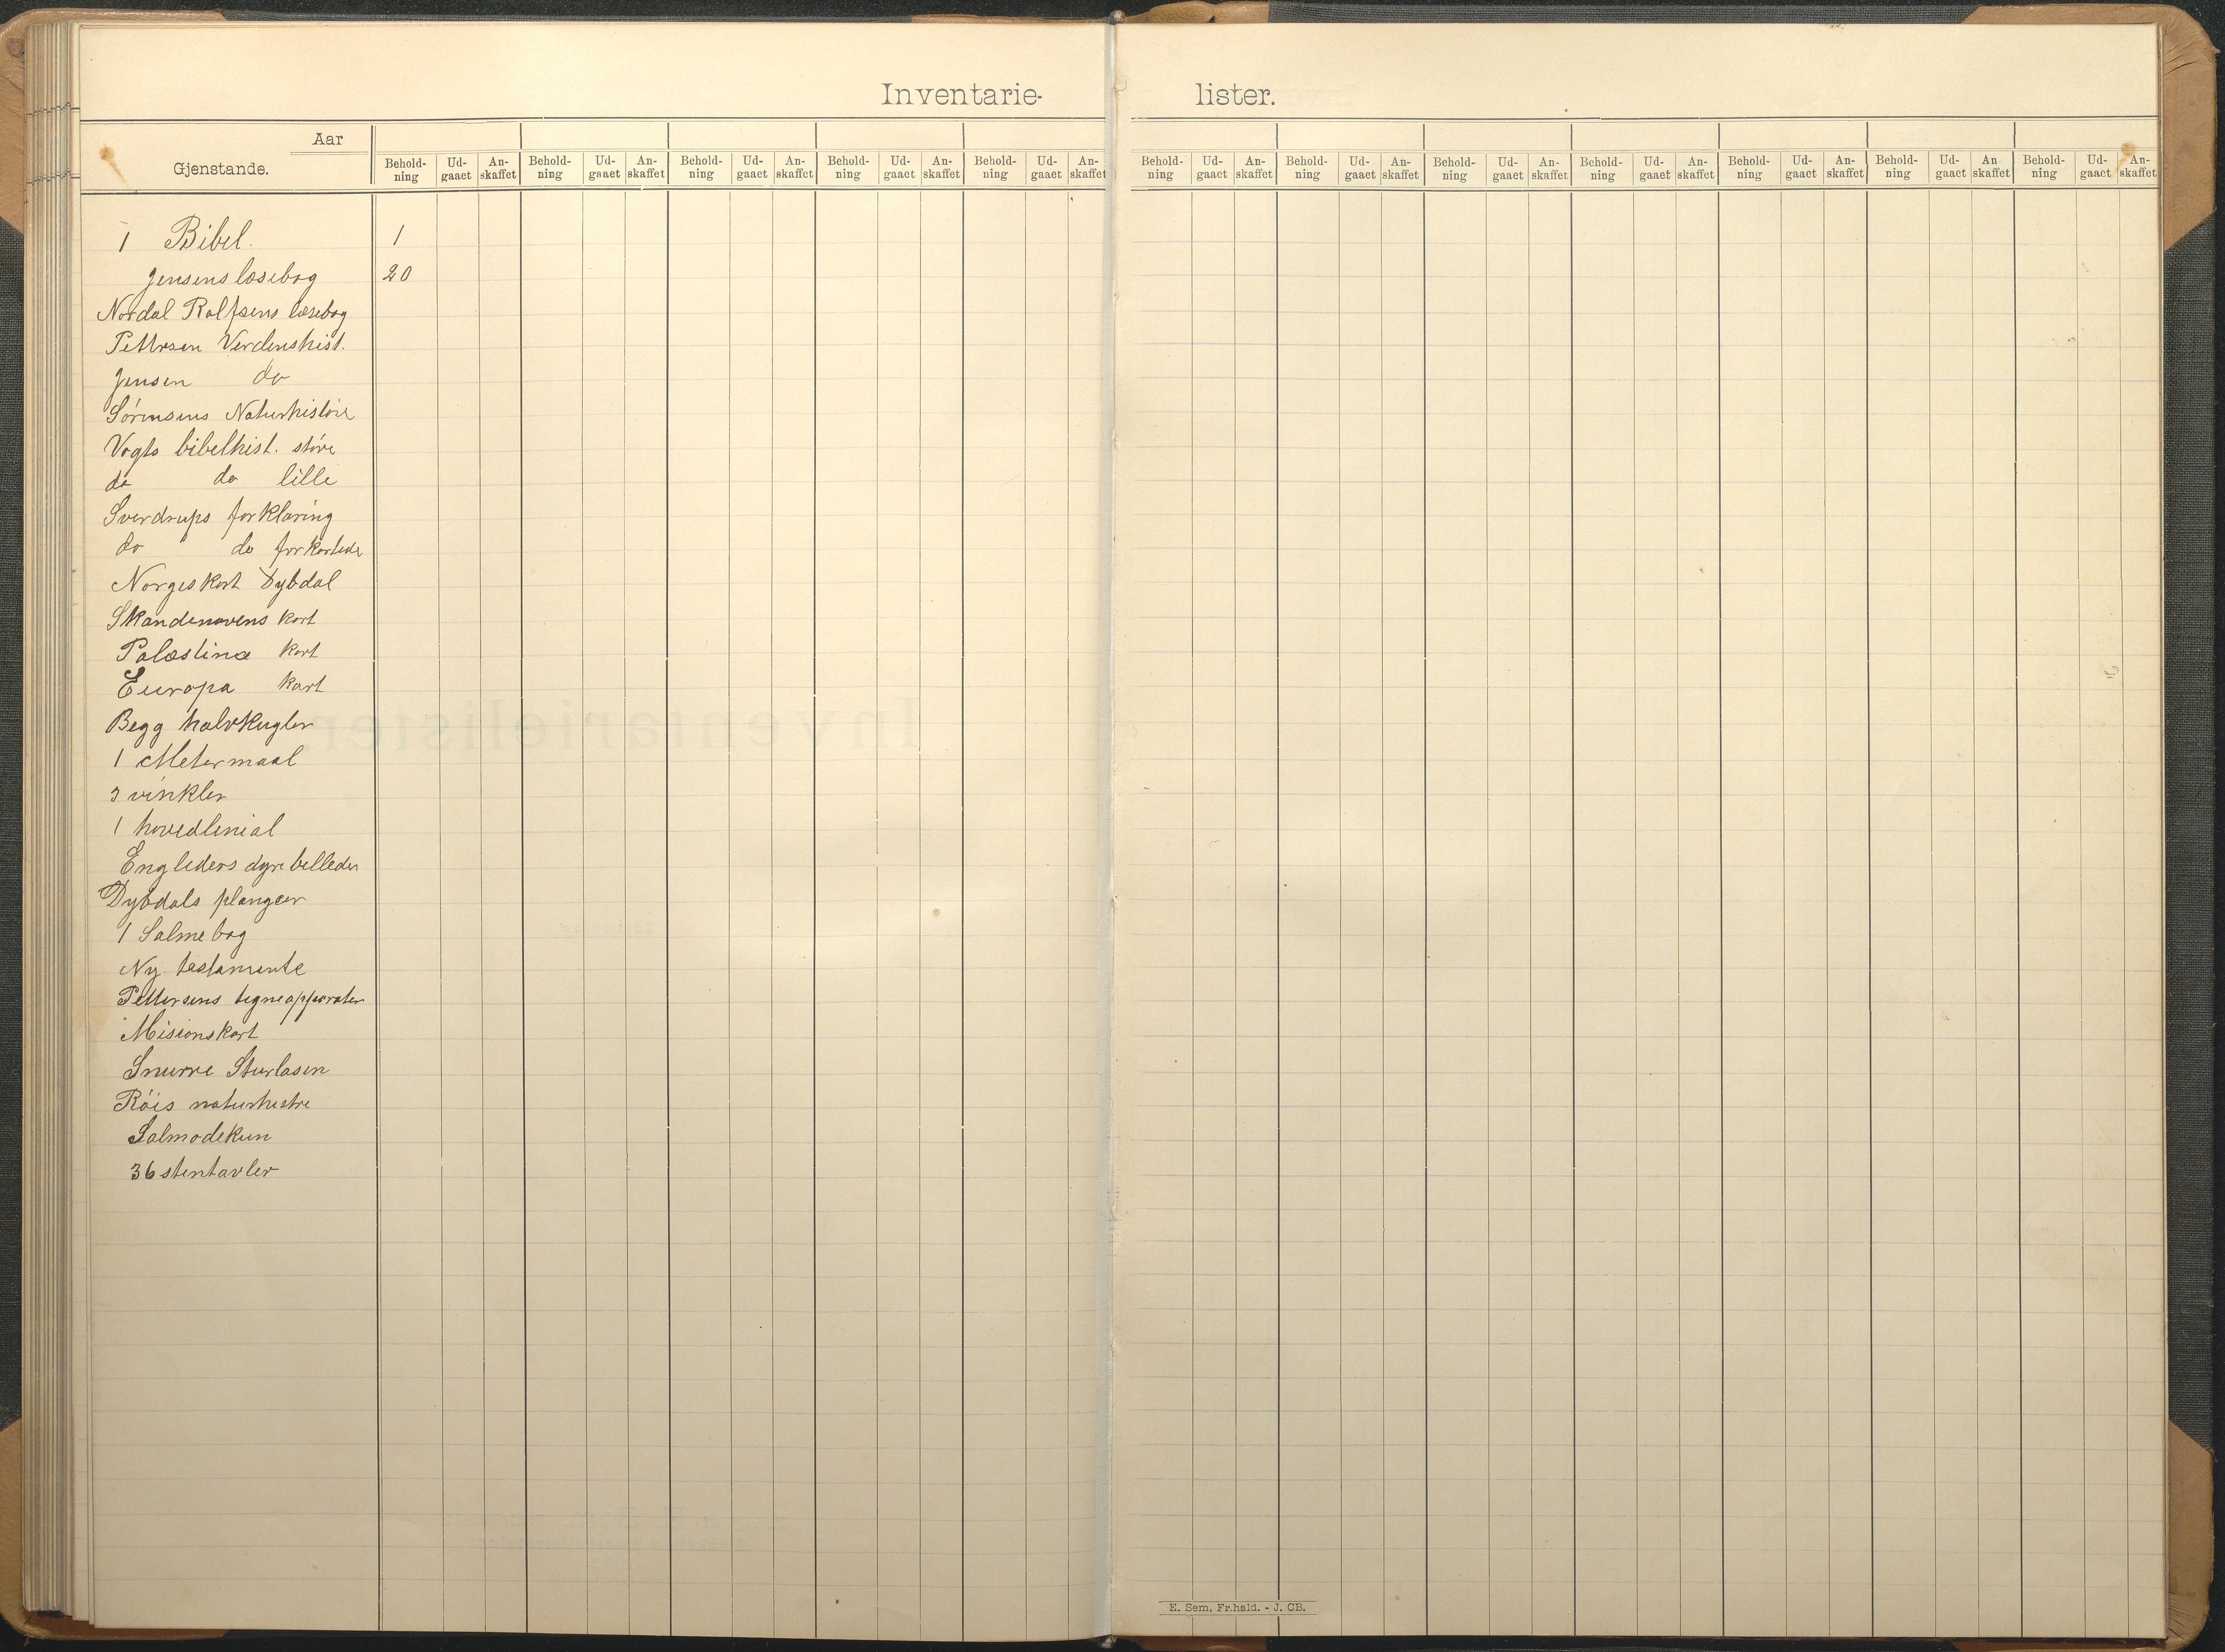 Inventarie- lister.
Aar
Gjenstande.
Behold-ning Ud-gaaet An-skaffet Behold-ning Ud-gaaet An-skaffet Behold-ning Ud-gaaet An-skaffet Behold-ning Ud-gaaet An-skaffet Behold-ning Ud-gaaet An-skaffet Behold-ning Ud-gaaet An-skaffet Behold-ning Ud-gaaet An-skaffet Behold-ning Ud-gaaet An-skaffet Behold-ning Ud-gaaet An-skaffet Behold-ning Ud-gaaet An-skaffet Behold-ning Ud-gaaet An-skaffet Behold-ning Ud-gaaet An-skaffet
1 Bibel. 1
Jensens læsebog 20
Nordal Rolfsens læsebog
Pettrsen Verdenshist.
Jensen do
Sørensens Naturhistorie
Vogts bibelhist. støre
do do lille
Sverdrups forklaring
do do forkortede
Norgeskort Dybdal
Skandenavens kort
Palæstina kort
Europa kart
Begg halvkugler
1 Metermaal
3 vinkler
1 hovedlinial
Engleders dyrebelleder
Dybdals plangcer
1 Salmebog
Ny testamente
Pettersens tegneapparater
Misionskart
Snurre Sturlasen
Røis naturhistre
Salmodekun
36 stentavler
E. Sem, Fr.hald. - J. CB.